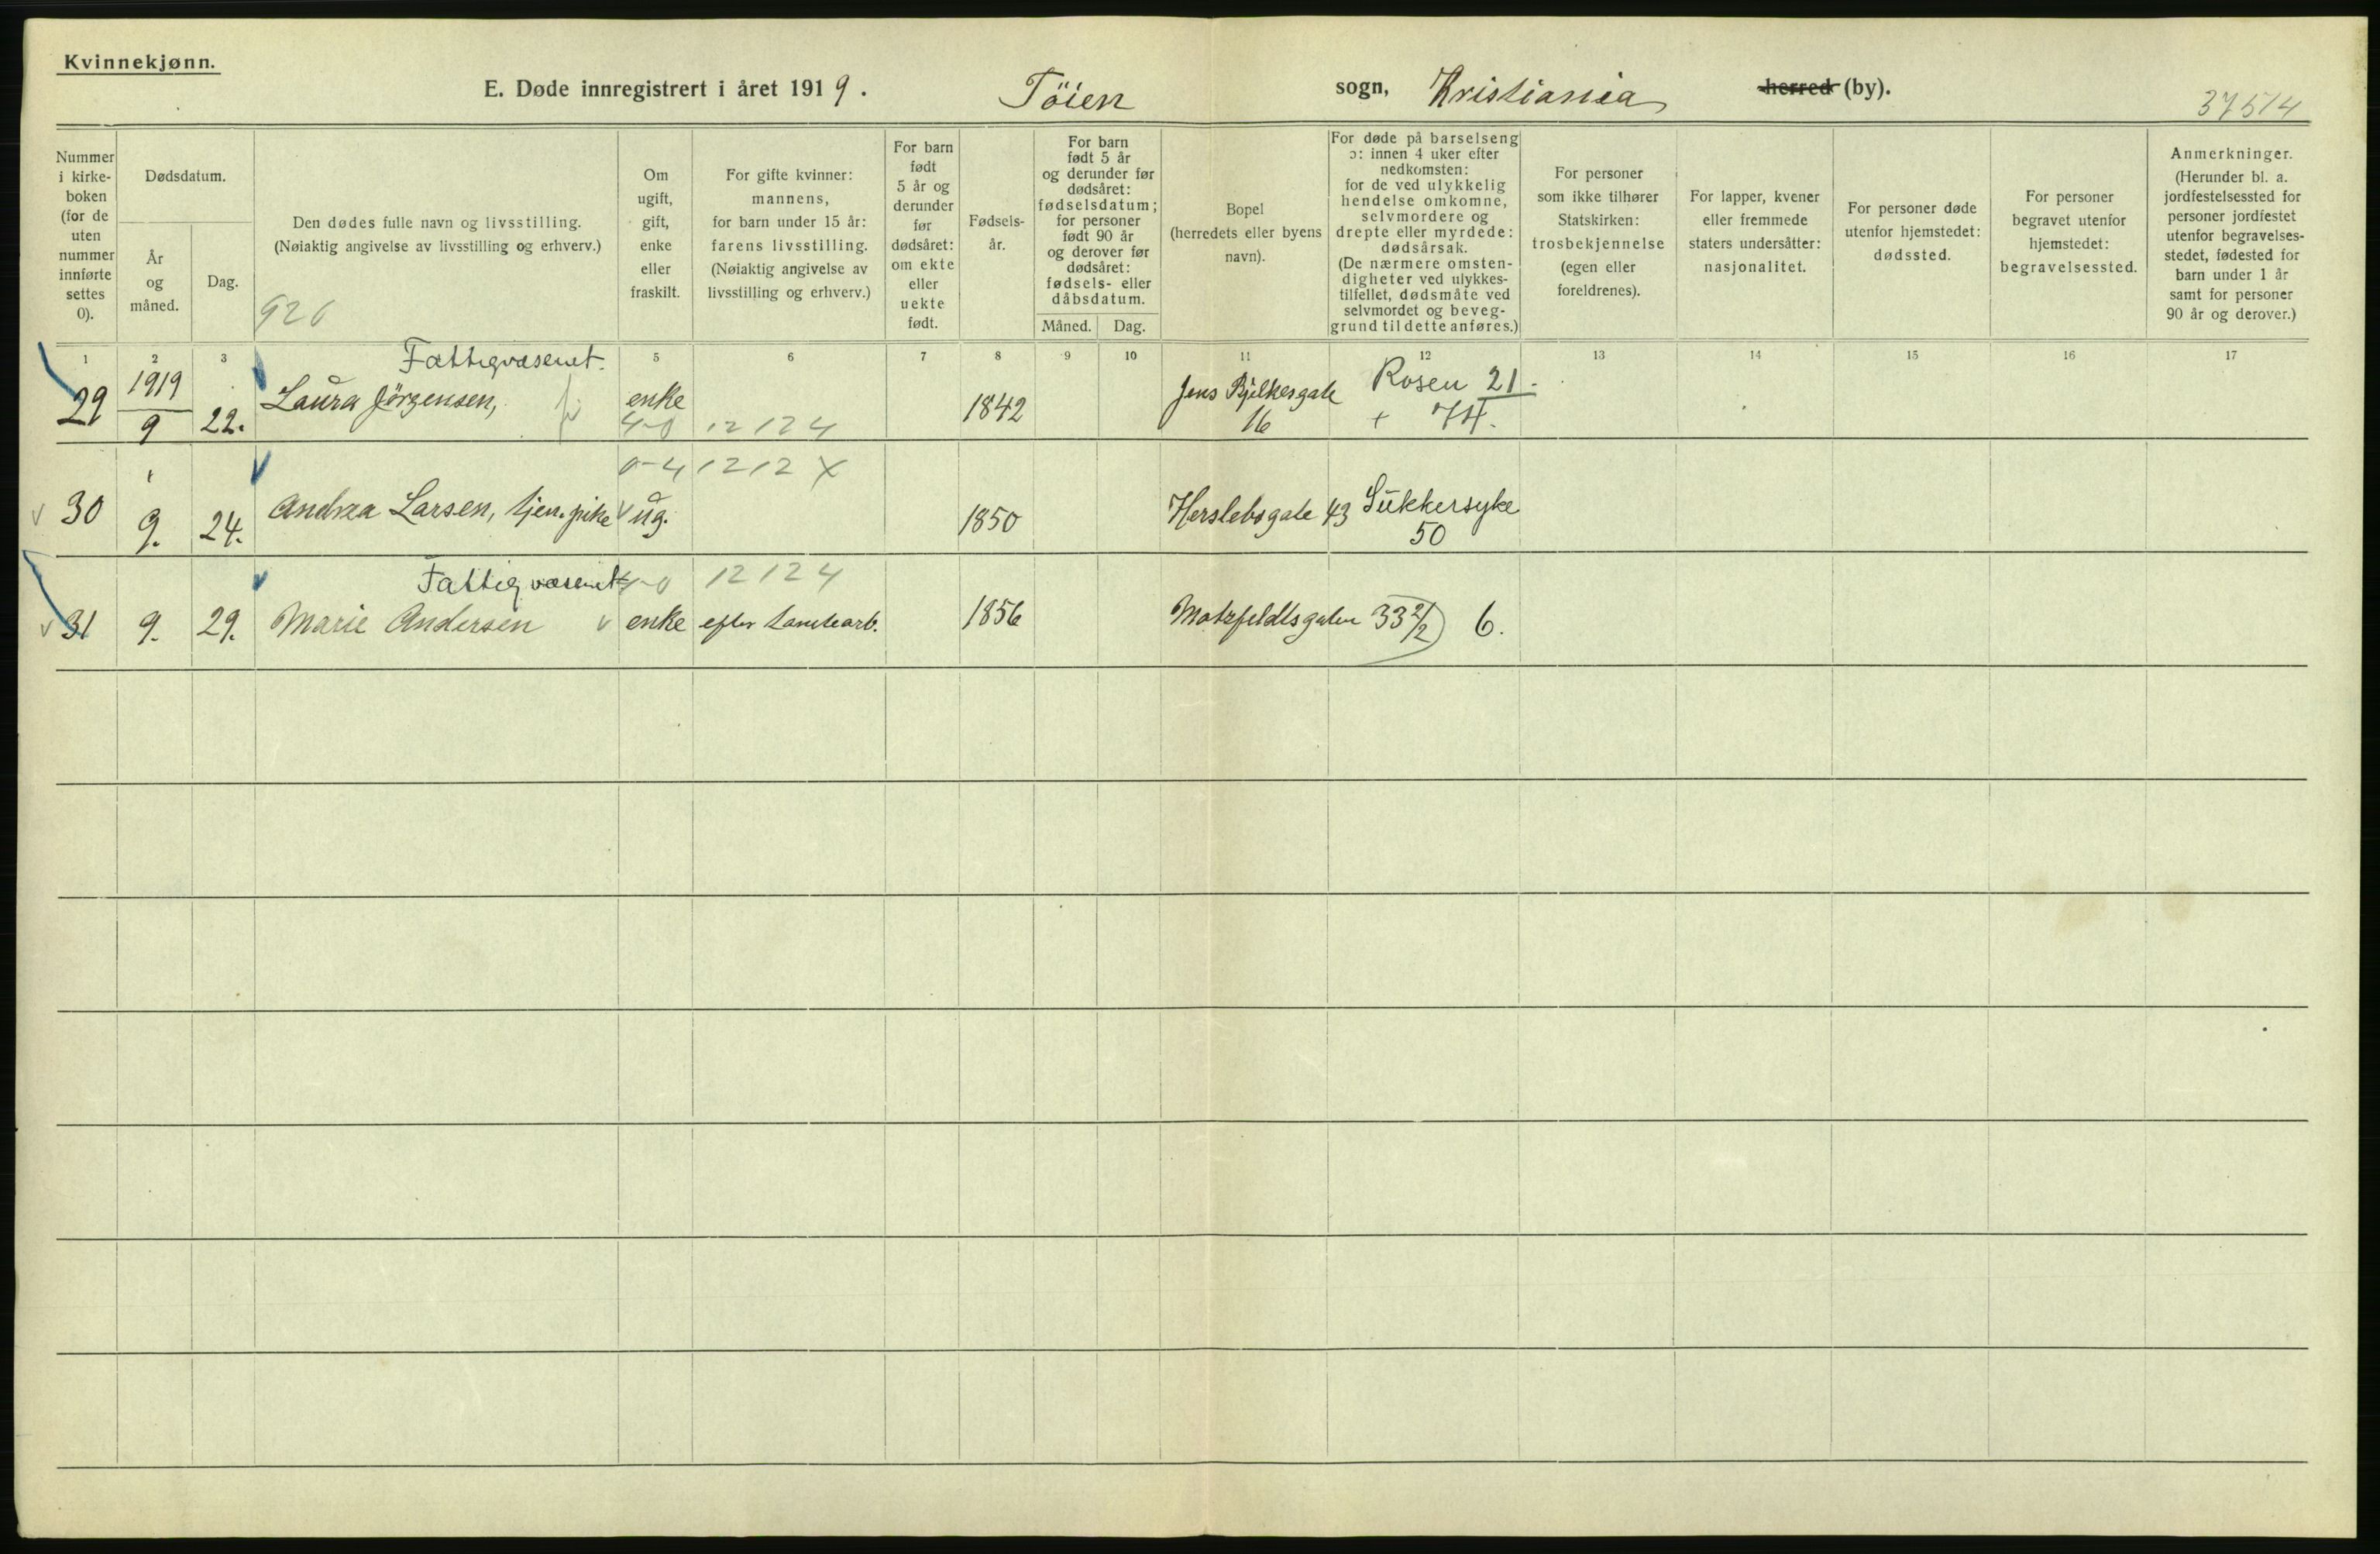 Kvinnekjønn.
E. Døde innregistrert i året 1919. Töien sogn, Kristiania herred (by).
37514
Nummer i kirke-boken (for de uten nummer innførte settes 0).
Dødsdatum.
År og måned.
Dag.
Den dødes fulle navn og livsstilling.
(Nøiaktig angivelse av livsstilling og erhverv.)
920
Om ugift, gift, enke eller fraskilt.
For gifte kvinner: mannens, for barn under 15 år: farens livsstilling. (Nøiaktig angivelse av livsstilling og erhverv.)
For barn født 5 år og derunder før dødsåret: om ekte eller uekte født.
Fødsels-år.
For barn født 5 år og derunder før dødsåret: fødselsdatum; for personer født 90 år og derover før dødsåret: fødsels- eller dåbsdatum.
Måned. Dag.
Bopel (herredets eller byens navn).
For døde på barselseng ɔ: innen 4 uker efter nedkomsten: for de ved ulykkelig hendelse omkomne, selvmordere og drepte eller myrdede: dødsårsak. (De nærmere omsten-digheter ved ulykkes-tilfellet, dødsmåte ved selvmordet og beveg-grund til dette anføres.)
For personer som ikke tilhører Statskirken: trosbekjennelse (egen eller foreldrenes).
For lapper, kvener eller fremmede staters undersåtter: nasjonalitet.
For personer døde utenfor hjemstedet: dødssted.
For personer begravet utenfor hjemstedet: begravelsessted.
Anmerkninger. (Herunder bl. a. jordfestelsessted for personer jordfestet utenfor begravelses-stedet, fødested for barn under 1 år samt for personer 90 år og derover.)
1 2 3 5 6 7 8 9 10 11 12 13 14 15 16 17
Fattigvæsenet.
29 1919 9 22. Laura Jörgensen, enke 1842 Jens Bjelkesgate 16 Rosen 21. + 74.
4-0 12124
0-4 1212 X
30 9. 24. Andrea Larsen, tjen.pike ug. 1850 Herslebsgate 43 Sukkersyke 50
Fattigvæsenet 4-0 12124
31 9. 29. Marie Andersen enke efter 1856 Motzfeldtsgaten 33 2/2 6.